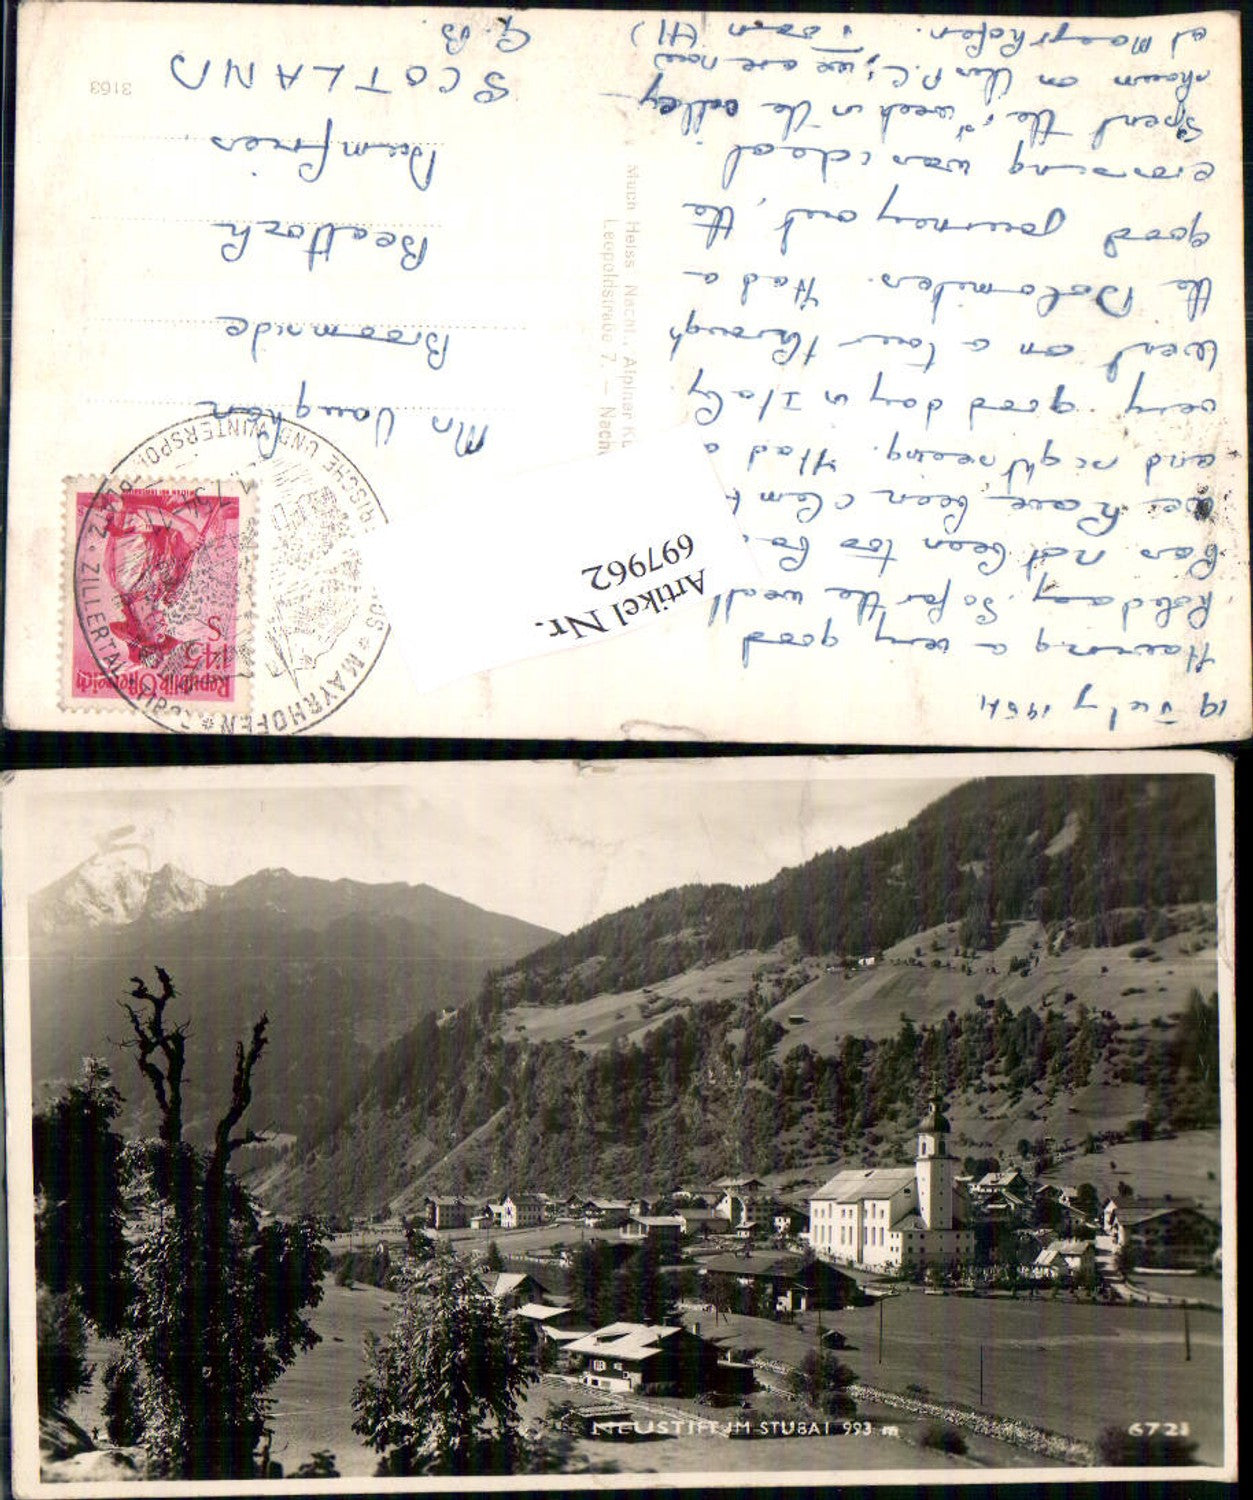 19 July 1954
Having a very good
holiday. So far the weath
has not been too ba
we have been climb
and sightseeing. Had a
very good day in Italy
Went on a tour through
the Dolomites. Had a
good journey out, the
crossing was ideal.
Spent the 1st week in the valley
shown on this P.C; we are now
at Mayrhofen.
Mr Vaughan
Broomside
Beattock
Dumfries.
SCOTLAND
G.B
3163
Much Heiss Nachf., Alpiner K
Leopoldstraße 7. — Nach
Republik Österreich
S 1.45
MAYRHOFEN
ZILLERTAL
UND WINTERSPO
Artikel Nr.
697962
NEUSTIFT IM STUBAI 993 m
6723